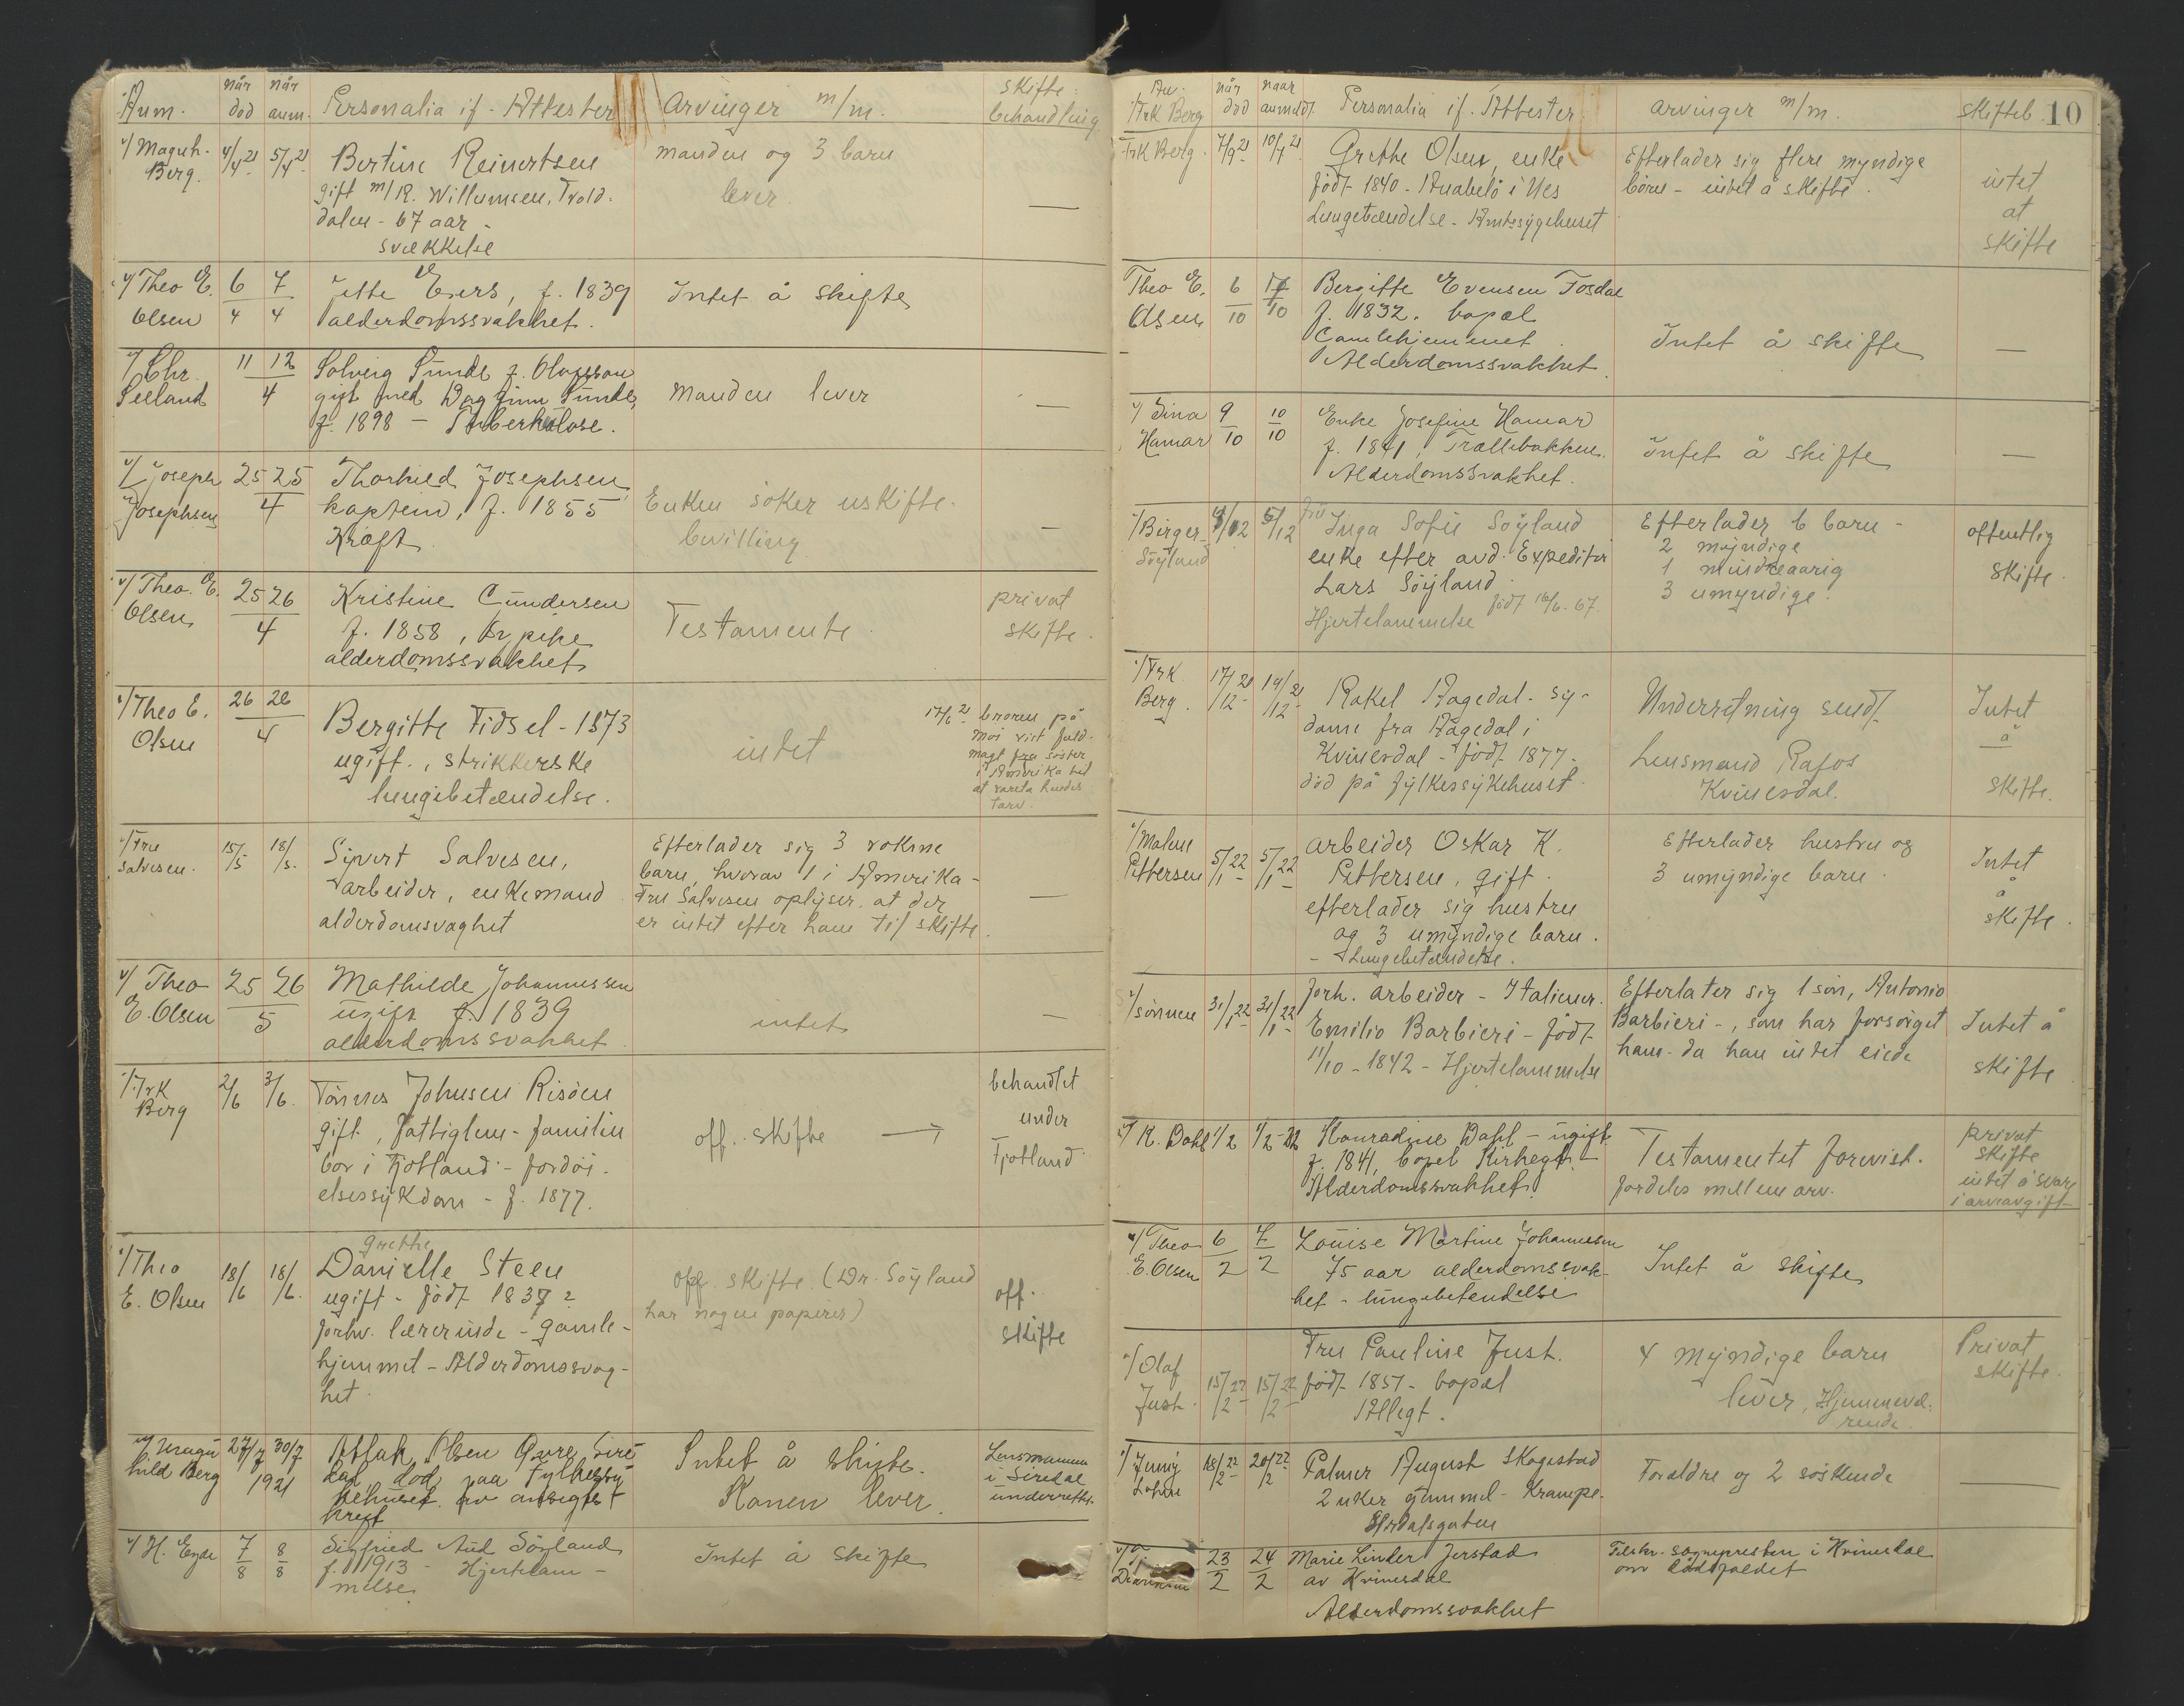 Anm.
når død
når anm.
Personalia if. Attester
Arvinger m/m.
Skifte-behandling
v/ Magnh. Berg.
4/4 21
5/4 21
Bertine Reinertsen
gift m/ R. Willumsen, Trold-
dalen - 67 aar -
svækkelse
manden og 3 barn
lever.
—
v/ Theo E. Olsen
6/4
7/4
Jette Eiers, f. 1839
alderdomssvakhet.
Intet å skifte
v/ Chr. Seeland
11 12
4
Solveig Sunde f. Olayssen
gift med Dagfinn Sunde,
f. 1898 - Tuberkulose.
Manden lever
—
v/ Joseph Josephsen
25 25
4
Thorkild Josephsen,
kaptein, f. 1855
Kræft
Enken søker uskifte-
bevilling
—
v/ Theo. E. Olsen
25 26
4
Kristine Gundersen
f. 1858, pike
alderdomssvakhet
Testamente.
privat
skifte.
v/ Theo E. Olsen
26 28
4
Bergitte Fidsel - 1873
ugift., strikkerske
lungebetændelse.
intet
17/6 21 broren på
Moi vist fuld-
magt fra søster
i Amerika til
at vareta hendes
tarv.
v/ Fru Salvesen.
15/5
18/5.
Sivert Salvesen,
arbeider, enkemand
alderdomsvaghet
Efterlader sig 3 voksne
barn, hvorav 1 i Amerika -
Fru Salvesen oplyser, at der
er intet efter ham til skifte.
—
v/ Theo E. Olsen
25 26
5
Mathilde Johannessen
ugift f. 1839
alderdomssvakhet
intet
—
v/ Frk Berg
2/6
3/6.
Tønnes Johnsen Risøen
gift, fattiglem - familien
bor i Fjotland - fordøi-
elsessykdom - f. 1877.
off. skifte →
behandlet
under
Fjotland
v/ Theo E. Olsen
18/6
18/6.
Grethe
Danielle Steen
ugift - født 1837?
forhv. lærerinde - gamle-
hjemmet - Alderdomssvag-
het.
off. skifte (Dr. Søyland
har nogen papirer)
off.
skifte
v/ Magnhild Berg
27/7
30/7
1921
Aslak Olsen Øvre Sire-
dal død paa Fylkessy-
kehuset av ansigts-
kreft
Intet å skifte.
Konen lever.
Lensmannen
i Siredal
underrettet.
v/ H. Eyde
7/8
8/8
Sigfried Aud Söyland
f. 1913 - Hjertelam-
melse
Intet å skifte
Av.
v/ Frk Berg
når død
naar anmeldt
Personalia if. Attester
Arvinger m/m.
Skifteb.
10
Frk Berg.
7/9 21
10/9 21
Grethe Olsen, enke
født 1840 - Anabelø i Nes
Lungebetændelse - Amtssygehuset
Efterlader sig flere myndige
børn - intet å skifte.
intet
at
skifte
Theo E. Olsen
6/10
17/10
Bergitte Evensen Fosdal
f. 1832. bopæl
Gamlehjemmet.
Alderdomssvakhet.
Intet å skifte
—
v/ Sina Hamar
9/10
10/10
Enke Josefine Hamar
f. 1841, Trællebakken.
Alderdomssvakhet.
Intet å skifte
—
v/ Birger Söyland
4/12
5/12
fru
Inga Sofie Söyland
enke efter avd. Expeditør
Lars Söyland.
Hjertelammelse født 16/6. 67.
Efterlader 6 barn -
2 myndige
1 mindreaarig
3 umyndige.
offentlig
skifte.
v/ Frk. Berg.
17/12 21
19/12 21
Rakel Aagedal - sy-
dame fra Aagedal i
Kvinesdal - født 1877 -
død på fylkessykehuset
Underretning sendt
Lensmand Rafos
Kvinesdal.
Intet
å
skifte.
v/ Malene Pettersen
5/1 22
5/1 22
Arbeider Oskar K.
Pettersen, gift.
efterlader sig hustru
og 3 umyndige barn.
- Lungebetændelse.
Efterlader hustru og
3 umyndige barn.
Intet
å
skifte.
v/ sønnen
31/1 22
31/1 22
forh. arbeider - Italiener.
Emilio Barbieri - født
11/10 - 1842 - Hjertelammelse
Efterlater sig 1 søn, Antonio
Barbieri -, som har forsørget
ham - da han intet eiede
Intet å
skifte
v/ K. Dahl
1/2
1/2 - 22
Konradine Dahl - ugift
f. 1841, bopæl Kirkegt. -
Alderdomssvakhet.
Testamentet forevist.
fordeles mellem arv.
privat
skifte
intet å svare
i arveavgift -
v/ Theo E. Olsen
6/2
7/2
Louise Martine Johannesen
75 aar alderdomssvak-
het - lungebetendelse
Intet å skifte
v/ Olaf Just.
15/2 22
15/2 22
Fru Pauline Just.
født 1857 - bopæl
Allegt.
4 myndige barn
lever, Hjemmevæ-
rende.
Privat
skifte.
v/ Jenny
18/2 22
20/2 22
Palmer August Skogestad
2 uker gammel - Krampe.
Elvdalsgaten
Forældre og 2 søskende
—
23/2
24/2
Marie Linder Jerstad
av Kvinesdal
Alderdomssvakhet
Tilskr. sognepresten i Kvinesdal
om dødsfaldet